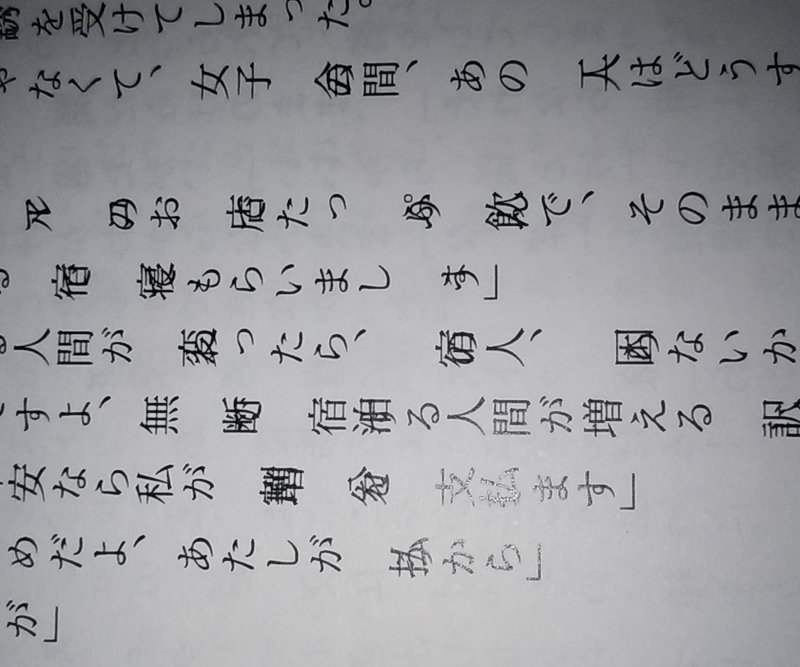 を受けてしまった。
なくて、女子 間、あの 人はどうす
のお 店たっ 飲で、そのまま
宿 寝もらいまし す」
人間が 変ったら、 宿人、 困ないか
すよ、無 断 宿泊る人間が増える 訳
安なら私が 支払ます」
めだよ、あたしが 払から」
が」